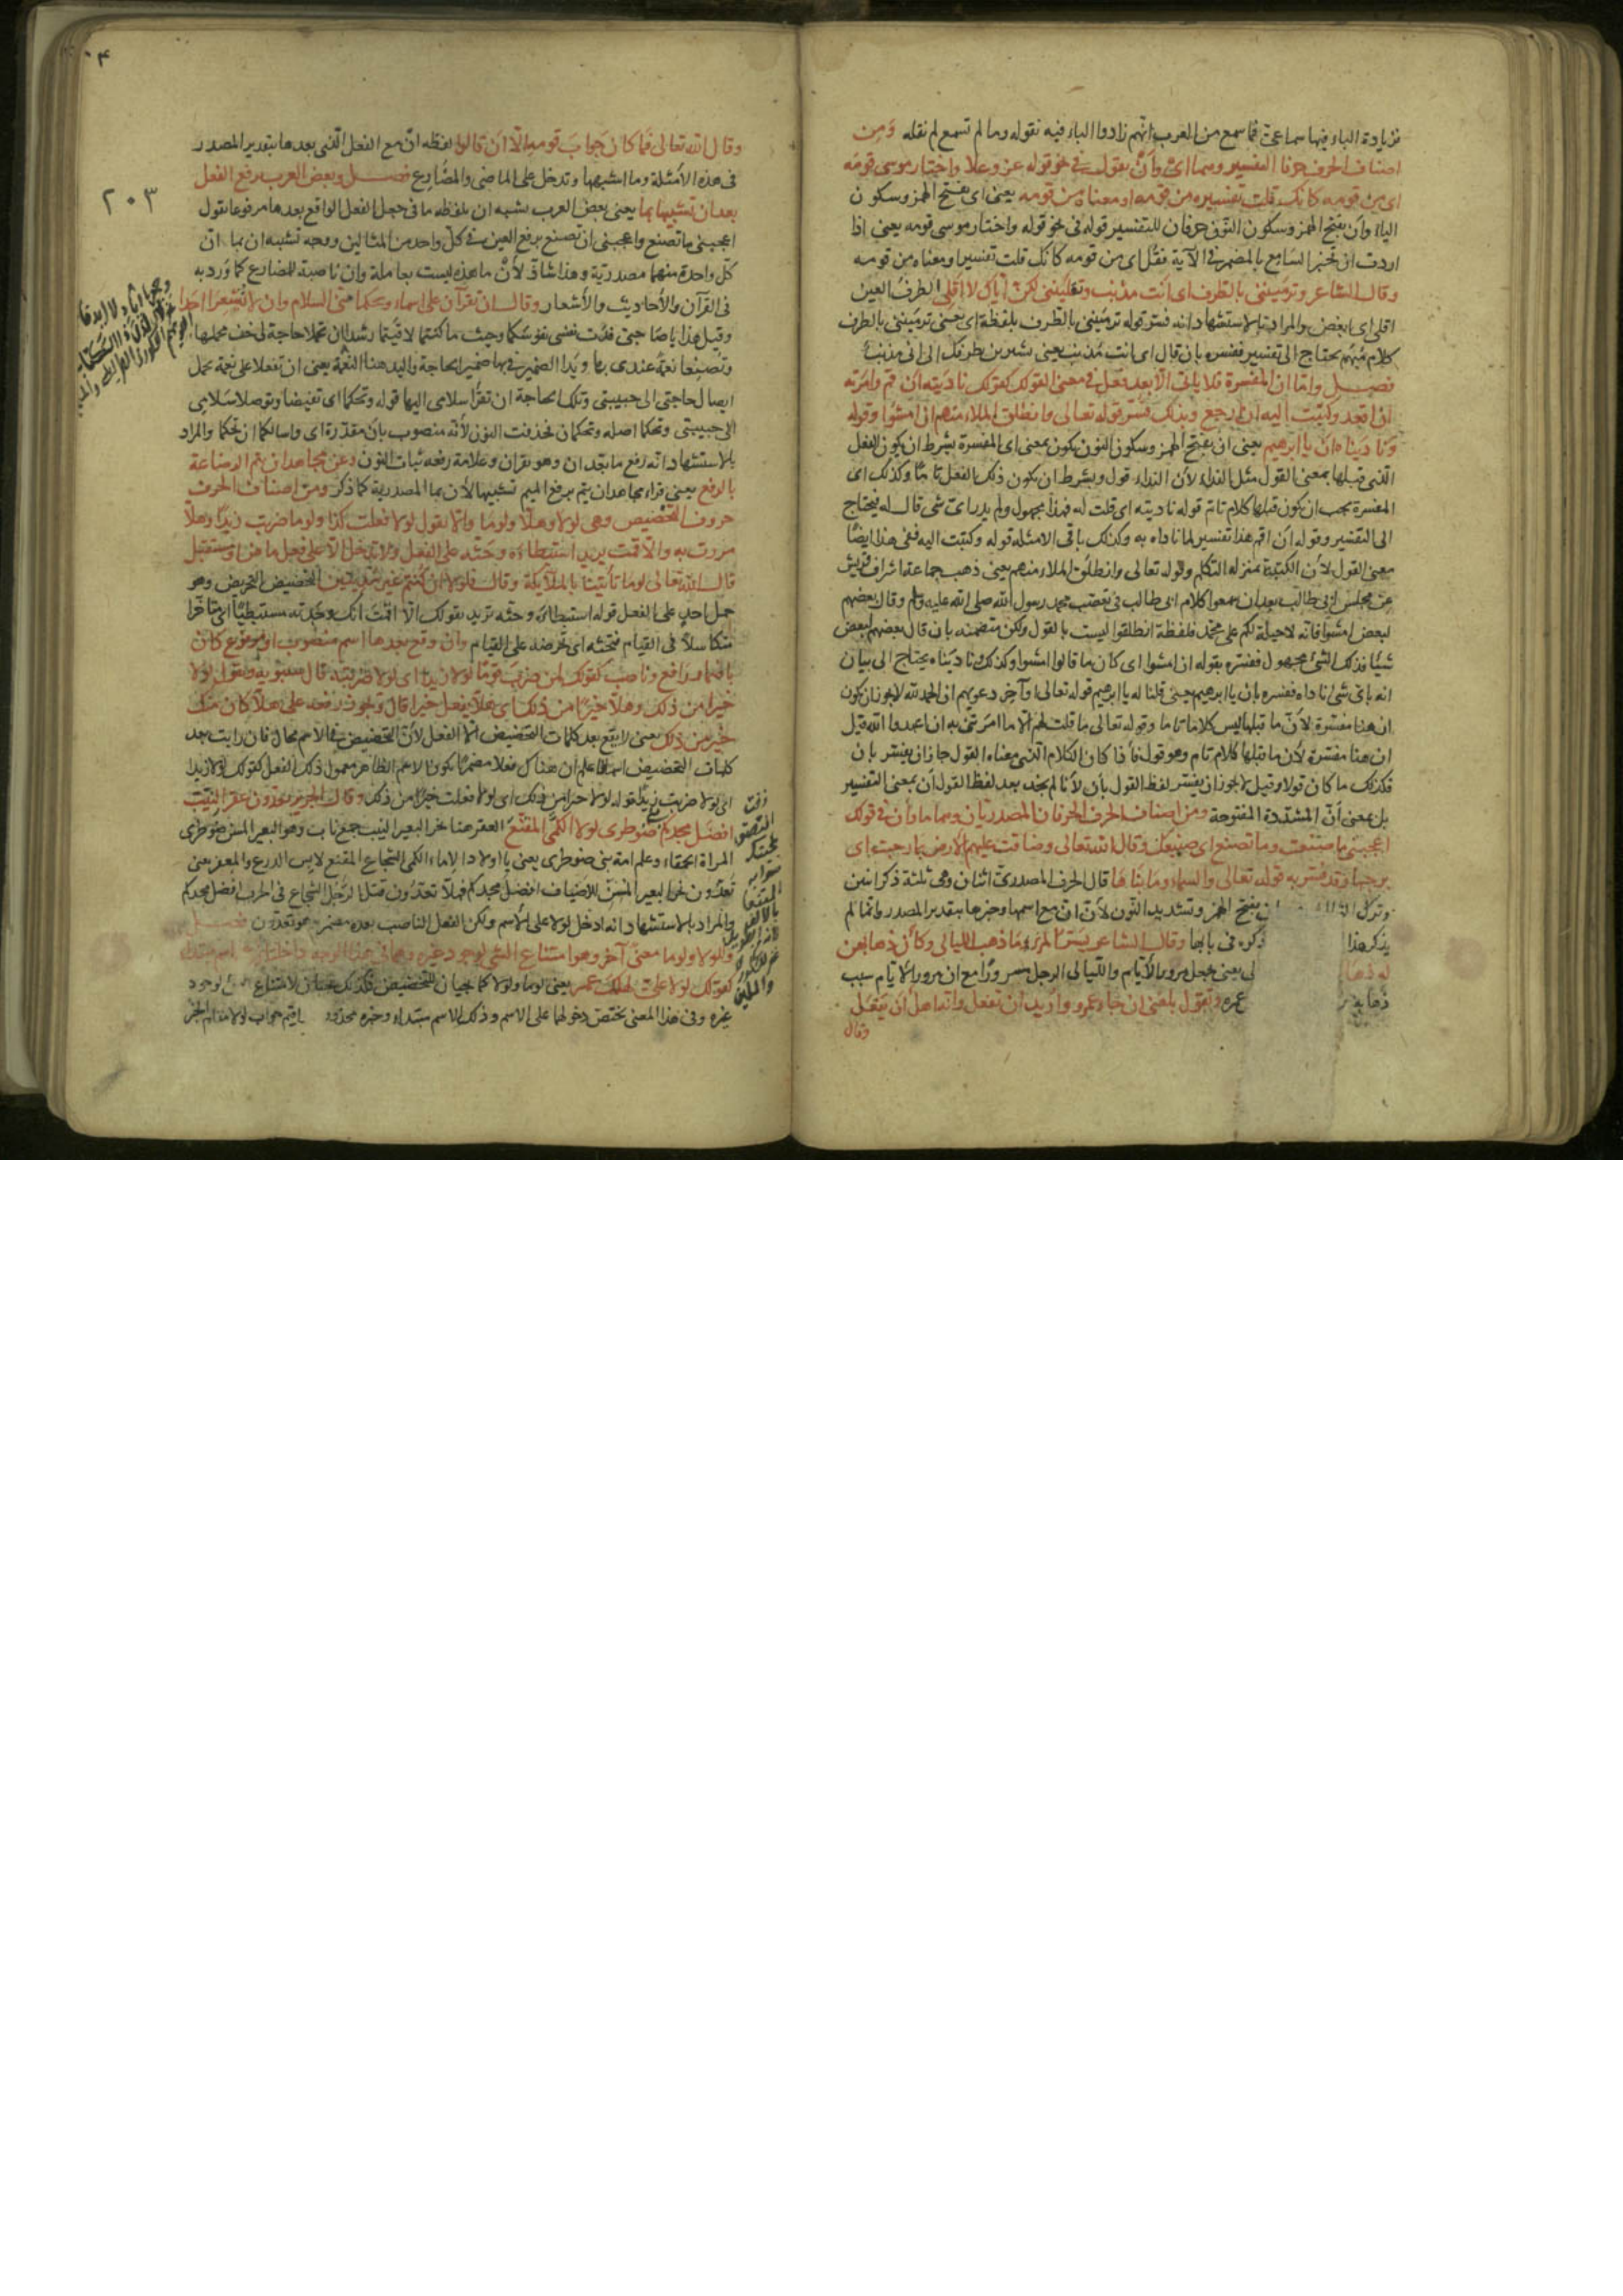 زيادة الباء فيها سماعى فما سمع من العرب انهم زادوا الباء فيه نقوله وما لم تسمع لم نقله ومن
اصناف الحرف حرفا التفسير وهما اى وأن يقول فى نحو قوله عز وعلا واختار موسى قومه
اى من قومه كانك قلت تفسيره من قومه او معناه من قومه يعنى اى بفتح الهمز وسكون
الياء وأن بفتح الهمز وسكون النون حرفان للتفسير قوله فى نحو قوله واختار موسى قومه يعنى اذا
اردت ان تخبر السامع بالمضمر فى الآية فقل اى من قومه كانك قلت تفسيرا ومعناه من قومه
وقال الشاعر وترمينى بالطرف اى انت مذنب وتقلينى لكن اياك لا اقلى الطرف العين
اقلى اى ابغض والمراد بالاستشهاد انه فسر قوله ترمينى بالطرف بلفظة اى يعنى ترمينى بالطرف
كلام مبهم يحتاج الى تفسير ففسره بان قال اى انت مذنب يعنى تشيرين بطرفك الى انى مذنب
فصل واما ان المفسرة فلا ياتى الا بعد فعل فى معنى القول كقولك ناديته أن قم وامرته
ان اقعد وكتبت اليه ان ارجع وبذلك فسر قوله تعالى وانطلق الملاء منهم ان امشوا وقوله
وناديناه ان يا ابرهيم يعنى ان بفتح الهمز وسكون النون يكون بمعنى اى المفسرة بشرط ان يكون الفعل
الذى قبلها بمعنى القول مثل النداء لأن النداء قول وبشرط ان يكون ذلك الفعل تاما وكذلك اى
المفسرة يجب ان يكون قبلها كلام تام قوله ناديته اى قلت له فهذا مجهول ولم يدر اى شى قال له فيحتاج
الى التفسير وقوله ان اقم هذا تفسير لما ناداه به وكذلك باقى الامثلة قوله وكتبت اليه ففى هذا ايضا
معنى القول لأن الكتبة بمنزلة التكلم وقوله تعالى وانطلق الملاء منهم يعنى ذهب جماعة اشراف قريش
عن مجلس ابى طالب بعد ان سمعوا كلام ابى طالب فى تعصب محمد رسول الله صلى الله عليه وسلم وقال بعضهم
لبعض امشوا فانه لا حيلة لكم على محمد فلفظة انطلقوا ليست بالقول ولكن متضمنه بان قال بعضهم لبعض
شيئا فذلك الشئ مجهول ففسره بقوله ان امشوا اى كان ما قالوا امشوا وكذلك وناديناه يحتاج الى بيان
انه باى شى ناداه ففسره بان يا ابرهيم يعنى قلنا له يا ابرهيم قوله تعالى وآخر دعويهم ان الحمد لله لا يجوز ان يكون
ان هنا مفسرة لأن ما قبلها ليس كلاما تاما وقوله تعالى ما قلت لهم الا ما امرتنى به ان اعبدوا الله قيل
ان هنا مفسرة لأن ما قبلها كلام تام وهو قول فاذا كان الكلام الذى معناه القول جاز ان يفسر بان
فكذلك ما كان قولا وقيل لا يجوز ان يفسر لفظ القول بأن لأنا لم نجد بعد لفظ القول أن بمعنى التفسير
بل بمعنى أن المشددة المفتوحة ومن اصناف الحرف الحرفان المصدريان وهما ما وأن فى قولك
اعجبنى ما صنعت وما تصنع اى صنيعك وقال الله تعالى وضاقت عليهم الارض بما رحبت اى
برحبها وقد فسر به قوله تعالى والسماء وما بناها قال الحرف المصدرى اثنان وهى ثلثة ذكر اثنين
وترك الثالث بفتح الهمز وتشديد النون لأن ان مع اسمها وخبرها بتقدير المصدر وانما لم
يذكر هذا ذكره فى بابها وقال الشاعر يسر المرء ما ذهب الليالى وكان ذهابهن
له ذهابا يعنى يجعل مرور الأيام والليالى الرجل مسرورا مع ان مرور الايام سبب
ذهاب عمره وتقول بلغنى ان جاء عمرو واريد ان تفعل وانه اهل ان يفعل
وقال
٢٠٣
وقال الله تعالى فما كان جواب قومه الا ان قالوا لفظه ان مع الفعل الذى بعدها بتقدير المصدر
فى هذه الأمثلة وما اشبهها وتدخل على الماضى والمضارع فصل وبعض العرب يرفع الفعل
بعد ان تشبيها بما يعنى بعض العرب يشبه ان بلفظه ما فى جعل الفعل الواقع بعدها مرفوعا يقول
اعجبنى ما تصنع واعجبنى ان تصنع برفع العين فى كل واحد من المثالين ووجه تشبه ان بما ان
كل واحدة منهما مصدرية وهذا شاذ لأن ما هذه ليست بعاملة وان ناصبة للمضارع كما ورد به
فى القرآن والأحاديث والأشعار وقال ان تقرآن على اسماء ويحكما منى السلام وان لا تشعرا احدا
وقبل هذا يا صاحبى فدت نفسى نفوسكما وحيث ما كنتما لاقيتما رشدا ان تحملا حاجة لى خف محملها
وتصنعا نعمة عندى بها ويدا الضمير فيها ضمير الحاجة واليد هنا النعمة يعنى ان تفعلا على نعمة بحمل
ايصال حاجتى الى حبيبتى وتلك الحاجة ان تقرأ سلامى اليها قوله ويحكما اى تفيضا وتوصلا سلامى
الى حبيبتى ويحكما اصله ويحكمان فحذفت النون لأنه منصوب بان مقدرة اى واسالكما ان تحكما والمراد
بالاستشهاد انه رفع ما بعد ان وهو تقران وعلامة رفعه ثبات النون وعن مجاهد ان يتم الرضاعة
بالرفع يعنى قراء مجاهد ان يتم برفع الميم تشبيها لأن بما المصدرية كما ذكر ومن اصناف الحرف
حروف التحضيض وهى لولا وهلا ولوما والا يقول لولا فعلت كذا ولوما ضربت زيدا وهلا
مررت به والا قمت يريد استبطاءه وحثه على الفعل ولا تدخل الا على فعل ماض او مستقبل
قال الله تعالى لوما تأتينا بالملائكة وقال فلولا ان كنتم غير مدينين التحضيض التحريض وهو
حمل احد على الفعل قوله استبطاءه وحثه تريد بقولك الا قمت انك وجدته مستبطيا اى متأخرا
متكاسلا فى القيام فتحثه اى تحرضه على القيام وان وقع بعدها اسم منصوب او مرفوع كان
باضمار رافع وناصب كقولك لمن ضرب قوما لولا زيدا اى لولا ضربته قال سيبويه وتقول لولا
خيرا من ذلك وهلا خيرا من ذلك اى هلا يفعل خيرا قال ويجوز رفعه على هلا كان منك
خير من ذلك يعنى لا يقع بعد كلمات التحضيض الا الفعل لأن التحضيض فى الاسم محال فان رايت بعد
كلمات التحضيض اسما فاعلم ان هناك فعلا مضمرا يكون الاسم الظاهر معمول ذلك الفعل كقولك لولا زيدا
اى لولا ضربت زيدا قوله لولا خيرا من ذلك اى لولا فعلت خيرا من ذلك وقال الجرير تعدون عقر النيب
افضل مجدكم ضوطرى لولا الكمى المقنعا العقر هنا نحر البعير النيب جمع ناب وهو البعير المسن ضوطرى
المراة الحمقاء وعلم امة بنى ضوطرى يعنى يا اولاد الاماء الكمى الشجاع المقنع لابس الدرع والمغفر يعنى
تعدون نحر البعير المسن للاضياف افضل مجدكم فهلا تعدون قتل الرجل الشجاع فى الحرب افضل مجدكم
والمراد بالاستشهاد انه ادخل لولا على الاسم ولكن الفعل الناصب بعده مضمر وهو تعدون فصل
وللولا ولوما معنى آخر وهو امتناع الشئ لوجود غيره وهما فى هذا الوجه داخلتان اسم مبتدا
كقولك لولا على لهلك عمر يعنى لوما ولولا كما يجيان للتحضيض فكذلك يجيان لامتناع لوجود
غيره وفى هذا المعنى يختص دخولها على الاسم وذلك الاسم مبتداء وخبره محذوف اقيم جواب لولا مقام الخبر